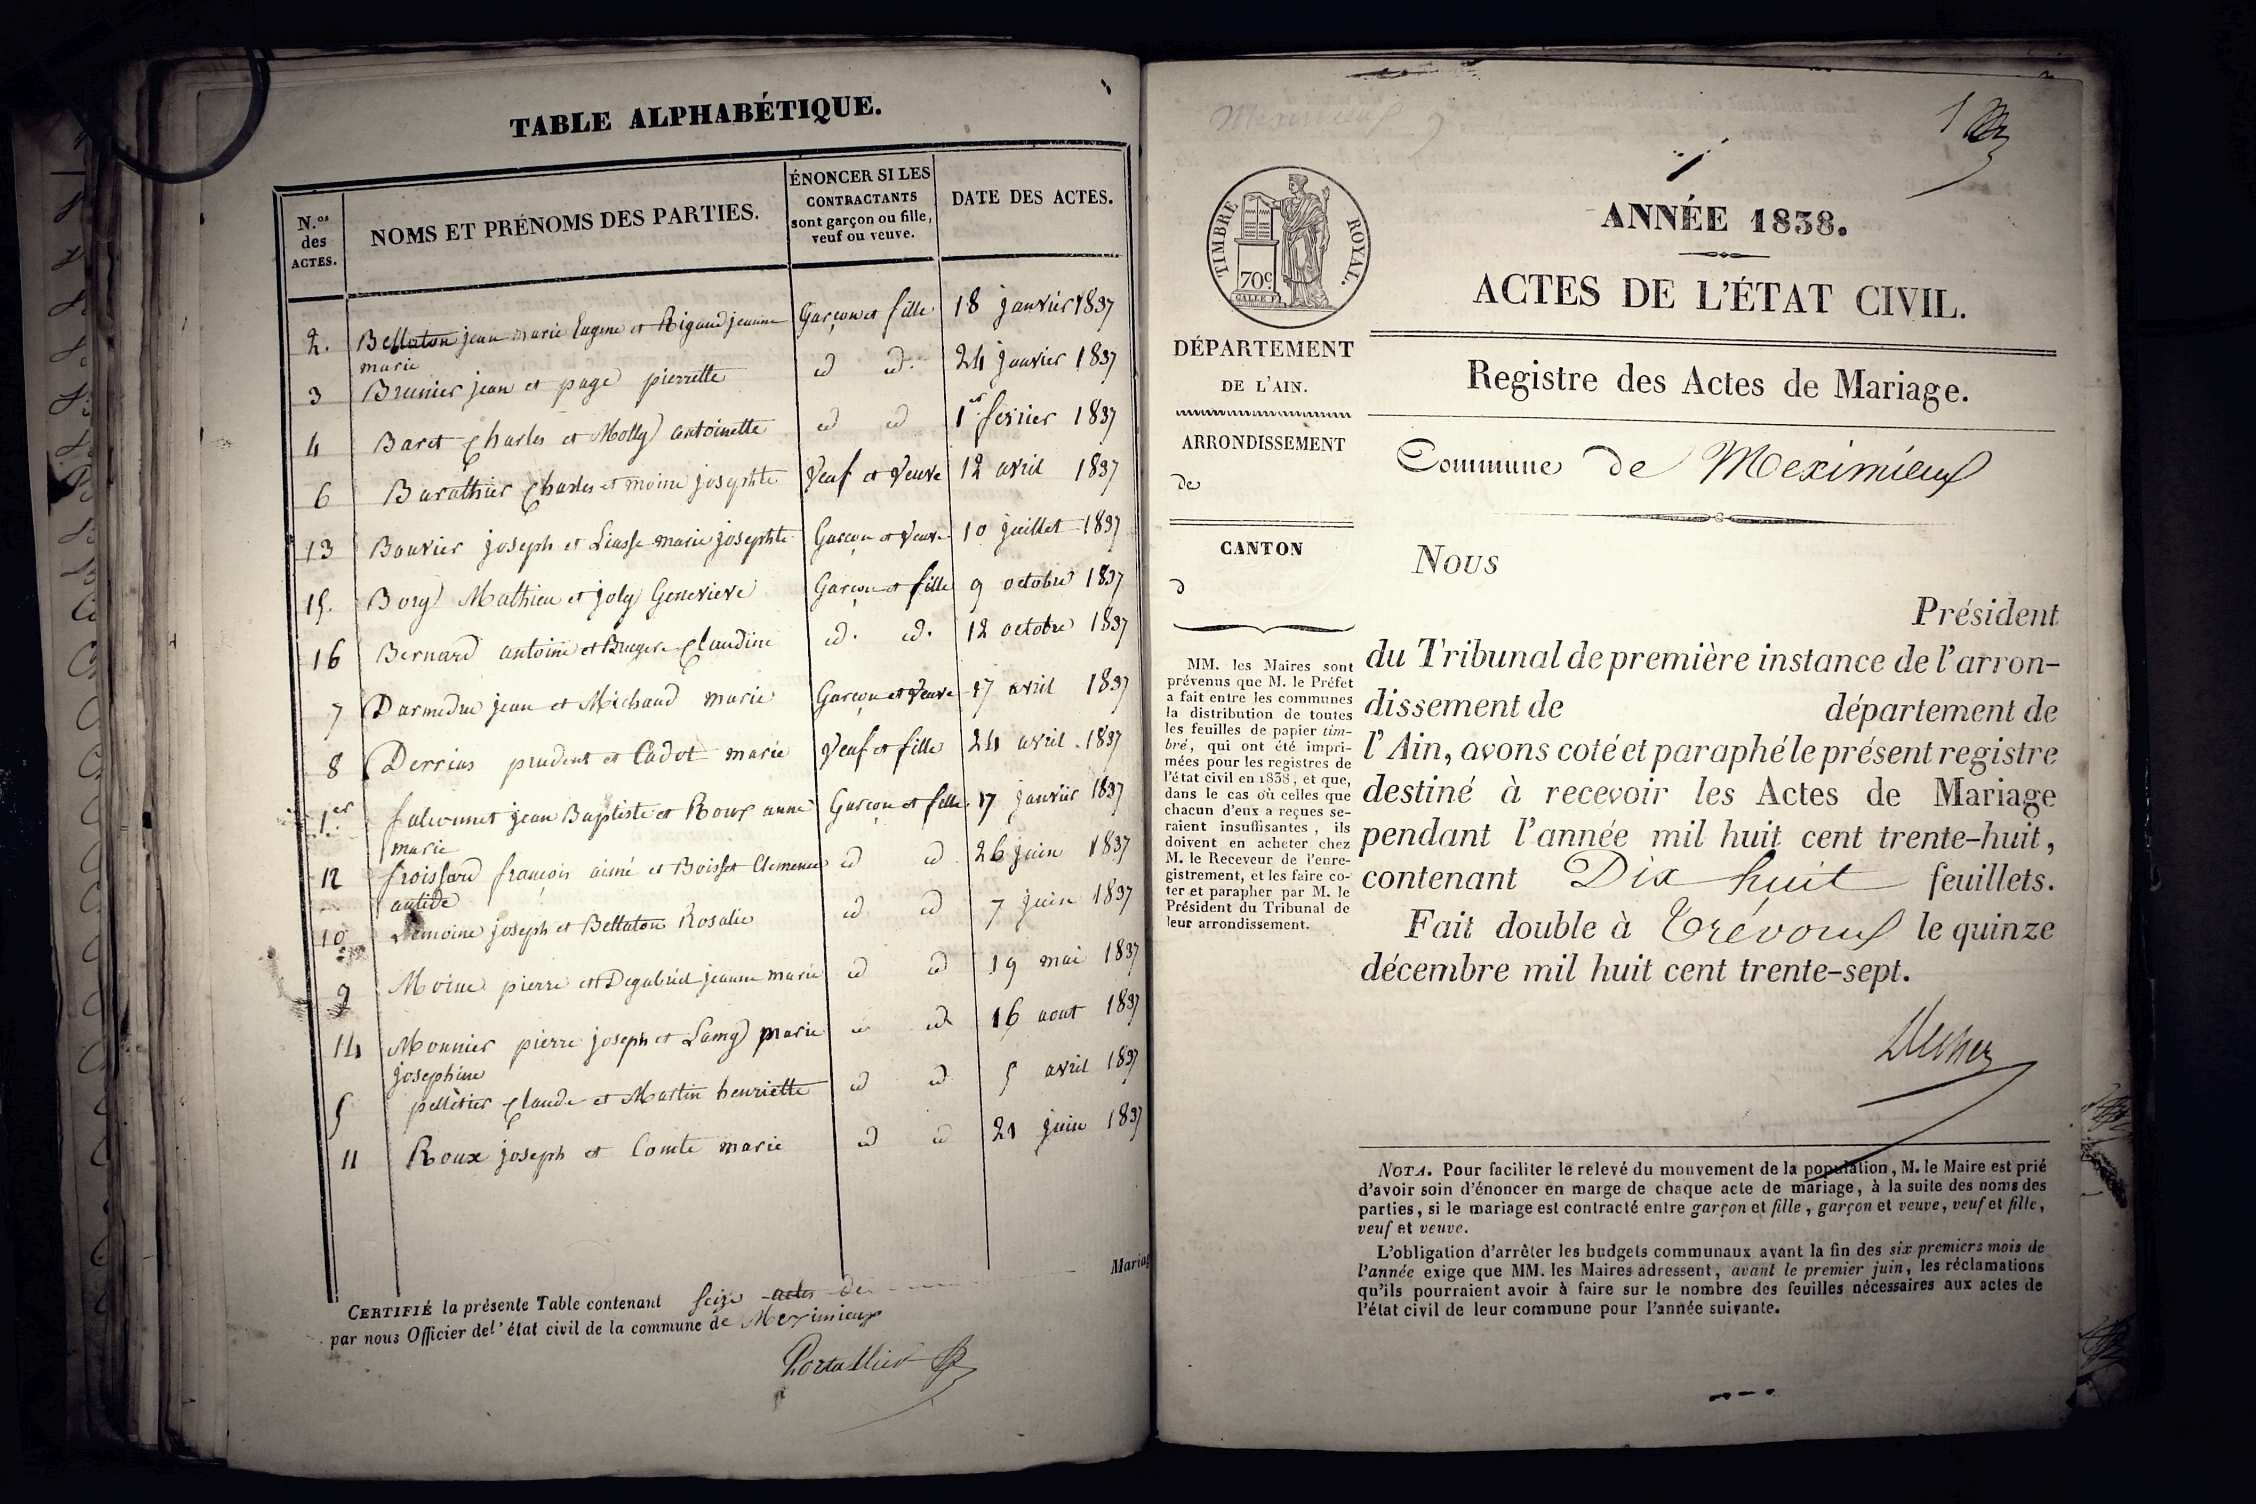 TABLE ALPHABÉTIQUE.
N.os des ACTES.
NOMS ET PRÉNOMS DES PARTIES.
ÉNONCER SI LES
CONTRACTANTS
sont garçon ou fille,
veuf ou veuve.
DATE DES ACTES.
2. Bellaton jean marie Eugene et Rigaud jeanne Garçon et fille 18 janvier 1837
marie
3 Brunier jean et page pierrette id id. 24 janvier 1837
4 Baret Charles et Molly antoinette id id 1er fevrier 1837
6 Barathier Charles et moine josephte Veuf et Veuve 12 avril 1837
13 Bouvier joseph et Liasse marie josephte Garçon et Veuve 10 juillet 1837
15. Bory Mathieu et joly Genevieve Garçon et fille 9 octobre 1837
16 Bernard antoine et Bruyere Claudine id. id. 12 octobre 1837
7 Darmedue jean et Michaud marie Garçon et Veuve 17 avril 1837
8 Derrias prudent et Cadot marie Veuf et fille 24 avril 1837
1er falconnet jean Baptiste et Roux anne Garçon et fille 17 janvier 1837
marie
12 froissard françois aimé et Boisset Clemence id id 26 juin 1837
10 Lemoine joseph et Bellaton Rosalie id id 7 juin 1837
9 Moine pierre et Degabriel jeanne marie id id 19 mai 1837
14 Monnier pierre joseph et Lamy marie id id 16 aout 1837
josephine
5 pelletier Claude et Martin henriette id id 5 avril 1837
11 Roux joseph et Comte marie id id 21 juin 1837
CERTIFIÉ la présente Table contenant seize actes de Mariag
par nous Officier de l'état civil de la commune de Meximieux
Portallier
Meximieux
1
TIMBRE ROYAL.
70c
ANNÉE 1838.
ACTES DE L'ÉTAT CIVIL.
DÉPARTEMENT
DE L'AIN.
ARRONDISSEMENT
de
CANTON
d
MM. les Maires sont
prévenus que M. le Préfet
a fait entre les communes
la distribution de toutes
les feuilles de papier tim-
bré, qui ont été impri-
mées pour les registres de
l'état civil en 1838, et que,
dans le cas où celles que
chacun d'eux a reçues se-
raient insuffisantes, ils
doivent en acheter chez
M. le Receveur de l'enre-
gistrement, et les faire co-
ter et parapher par M. le
Président du Tribunal de
leur arrondissement.
Registre des Actes de Mariage.
Commune de Meximieux
NOUS
Président
du Tribunal de première instance de l'arron-
dissement de département de
l'Ain, avons coté et paraphé le présent registre
destiné à recevoir les Actes de Mariage
pendant l'année mil huit cent trente-huit,
contenant Dix huit feuillets.
Fait double à Trévoux le quinze
décembre mil huit cent trente-sept.
NOTA. Pour faciliter le relevé du mouvement de la population, M. le Maire est prié
d'avoir soin d'énoncer en marge de chaque acte de mariage, à la suite des noms des
parties, si le mariage est contracté entre garçon et fille, garçon et veuve, veuf et fille,
veuf et veuve.
L'obligation d'arrêter les budgets communaux avant la fin des six premiers mois de
l'année exige que MM. les Maires adressent, avant le premier juin, les réclamations
qu'ils pourraient avoir à faire sur le nombre des feuilles nécessaires aux actes de
l'état civil de leur commune pour l'année suivante.